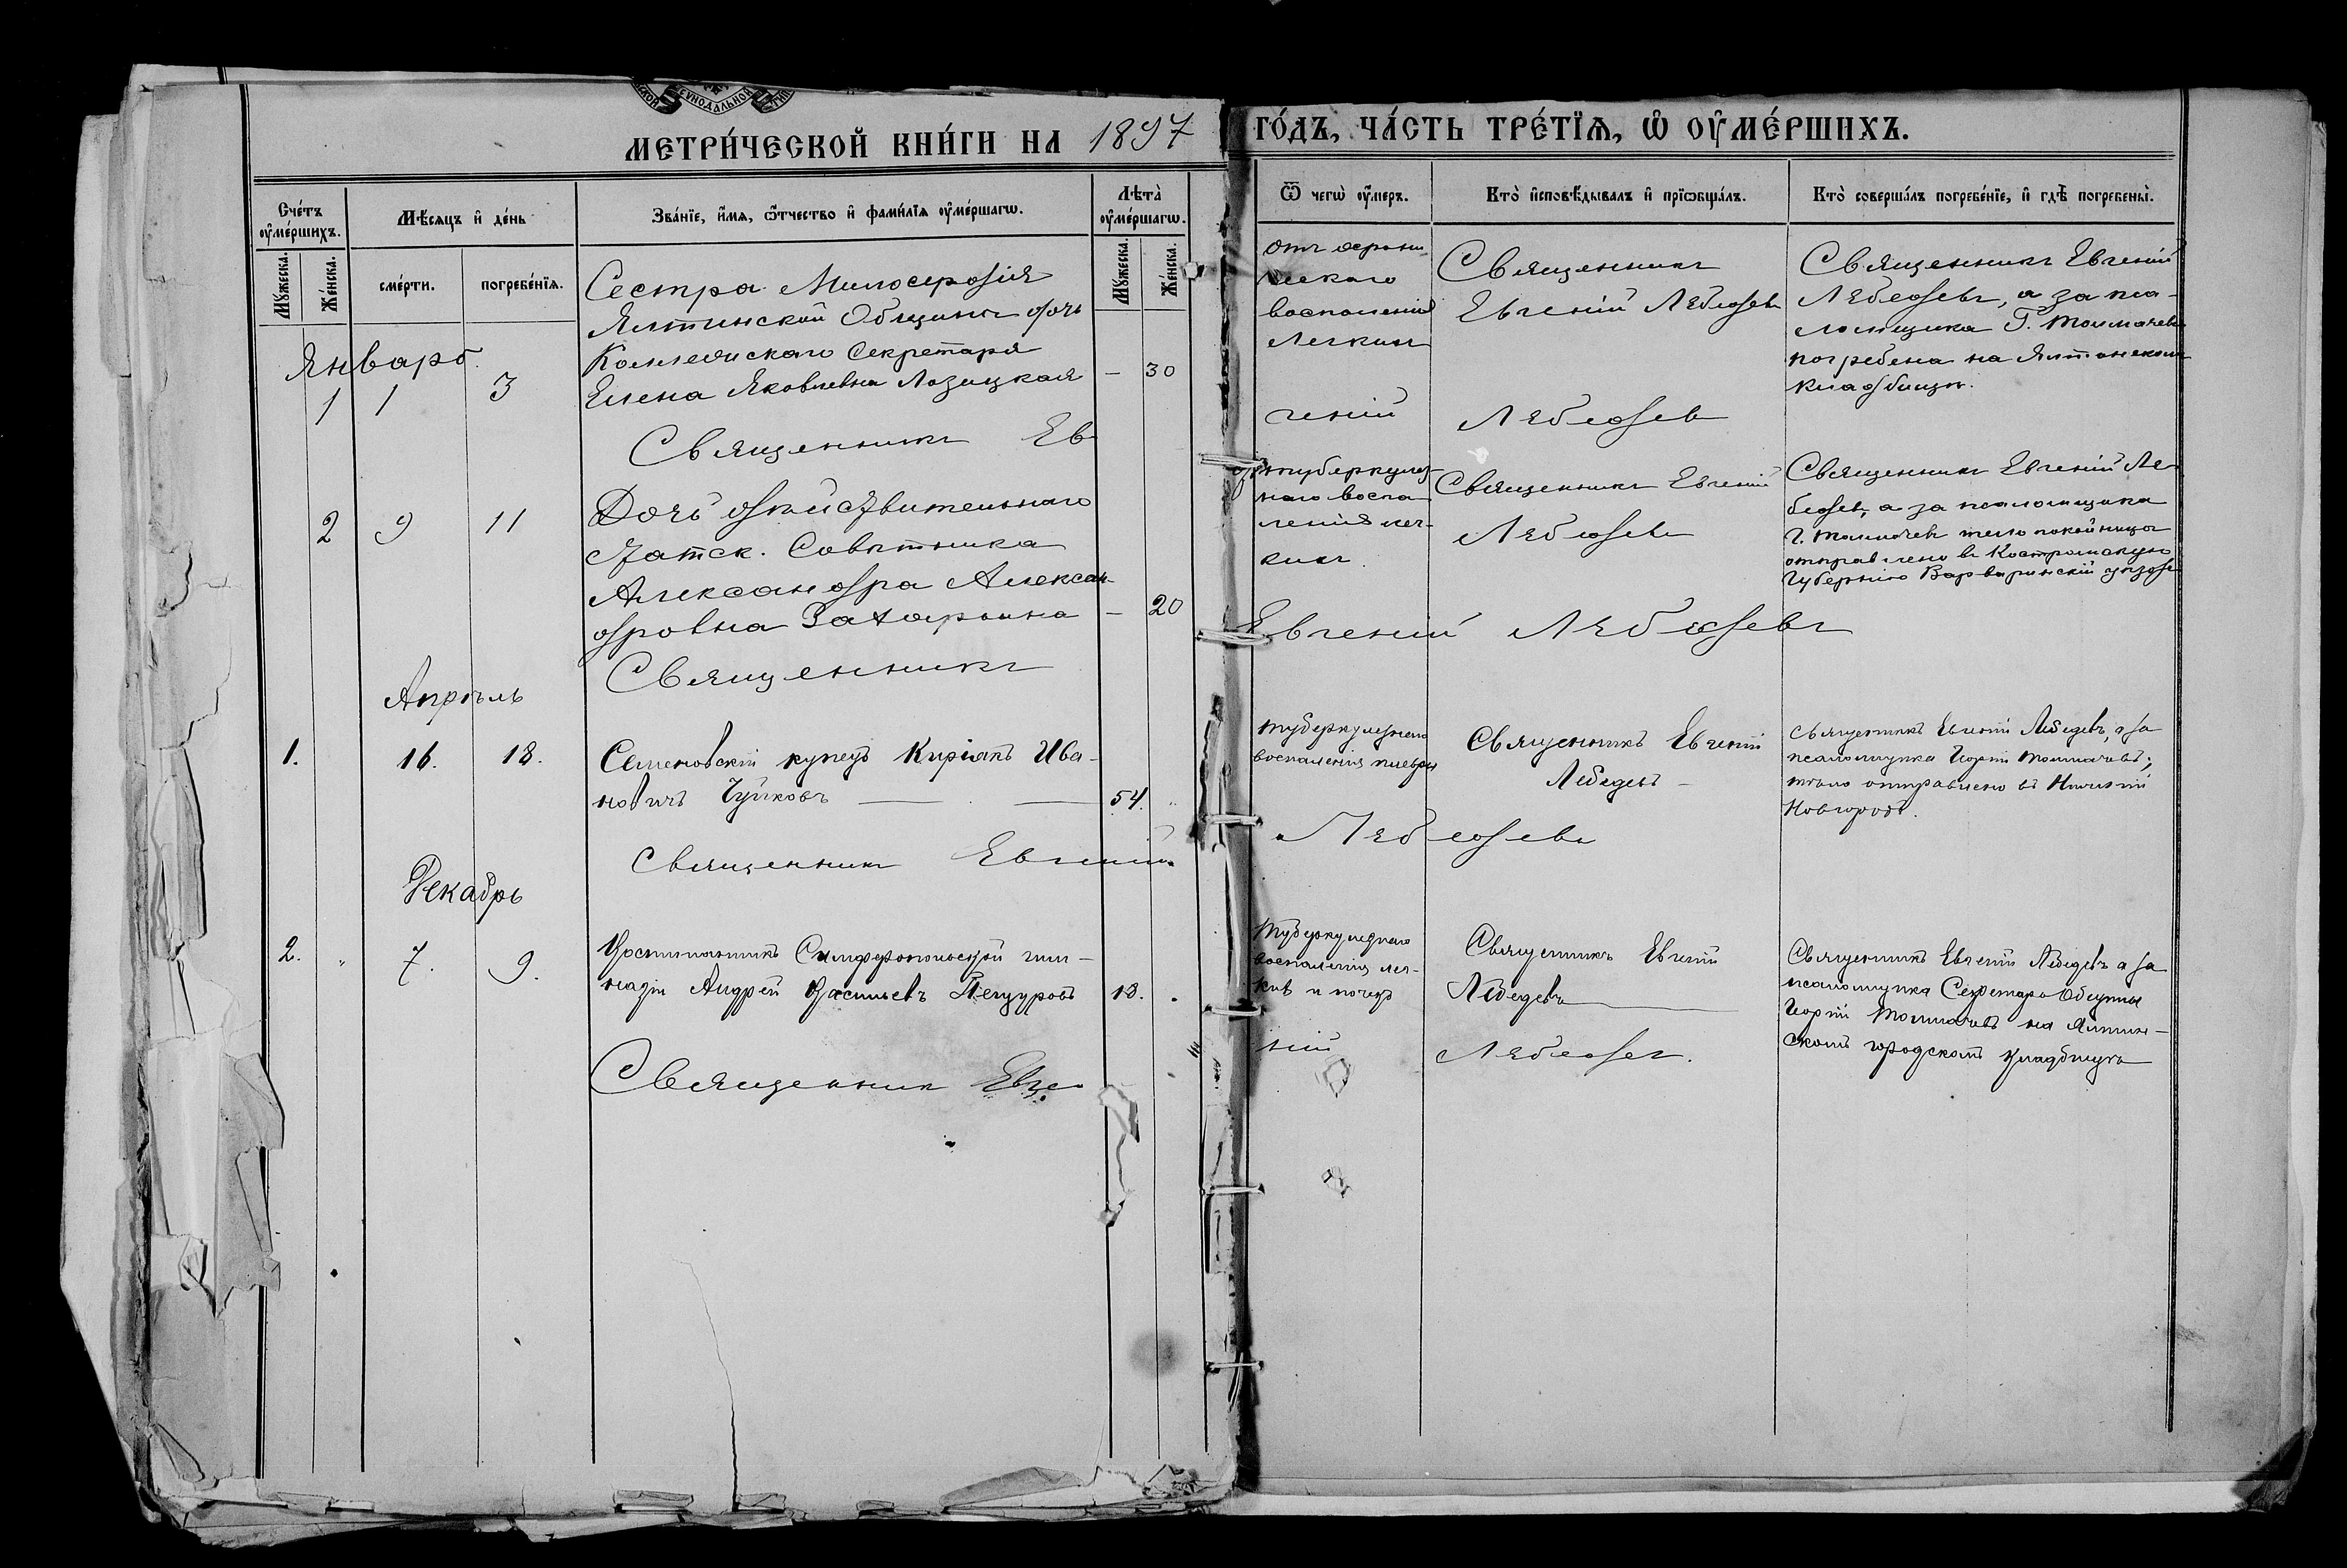 СУНОДАЛЬНОЙ
МЕТРИ́ЧЕСКОЙ КНИ́ГИ НА 1897 ГО́ДЪ, ЧА́СТЬ ТРЕ́ТЇѦ, Ѡ҆ ОУ҆МЕ́РШИХЪ.
Сче́тъ оу҆ме́ршихъ.
Мꙋ́жеска.
Же́нска.
Мѣ́сѧцъ и҆ де́нь
сме́рти.
погребе́нїѧ.
Зва́нїе, и҆́мѧ, ѻ҆́тчество и҆ фами́лїѧ оу҆ме́ршагѡ.
Лѣ́та̀ оу҆ме́ршагѡ.
Мꙋ́жеска.
Же́нска.
Ѿ чегѡ̀ оу҆́меръ.
Кто̀ и҆сповѣ́дывалъ и҆ прїѡбща́лъ.
Кто̀ соверша́лъ погребе́нїе, и҆ гдѣ̀ погребены̀.
Январь
1 1 3
Сестра Милосердія
Ялтинской Общины дочь
Коллежскаго Секретаря
Елена Яковлевна Лозицкая — 30
отъ хрони
ческаго
воспаленія
легкихъ
Священникъ
Евгеній Лебедевъ
Священникъ Евгеній
Лебедевъ, а за пса-
ломщика Г. Толмачевъ
погребена на Ялтинскомъ
кладбищѣ.
Священникъ Евгеній Лебедевъ
2 9 11
Дочь дѣйствительнаго
Статск. Совѣтника
Александра Алексан-
дровна Захарьина — 20
отъ туберкулез-
наго воспа-
ленія лег-
кихъ
Священникъ Евгеній
Лебедевъ
Священникъ Евгеній Ле-
бедевъ, а за псаломщика
Г. Толмачевъ тѣло покойницы
отправлено въ Костромскую
Губернію Варваринскій уѣздъ
Священникъ Евгеній Лебедевъ
Апрѣль
1. 16. 18.
Семеновскій купецъ Киріакъ Ива-
новичъ Чуйковъ — — 54. "
туберкулезнаго
воспаленія плевры
Священникъ Евгеній
Лебедевъ —
Священникъ Евгеній Лебедевъ, а за
псаломщика Георгій Толмачевъ;
тѣло отправлено въ Нижній
Новгородъ.
Священникъ Евгеній Лебедевъ
Декабрь
2. " 7. 9.
Воспитанникъ Симферопольской гим-
назіи Андрей Васильевъ 18.
Туберкулезнаго
воспаленія лег-
кихъ и почекъ
Священникъ Евгеній
Лебедевъ
Священникъ Евгеній Лебедевъ а за
псаломщика Секретарь Общины
Георгій Толмачевъ на Ялтин-
скомъ городскомъ кладбищѣ
Священникъ Евгеній Лебедевъ.